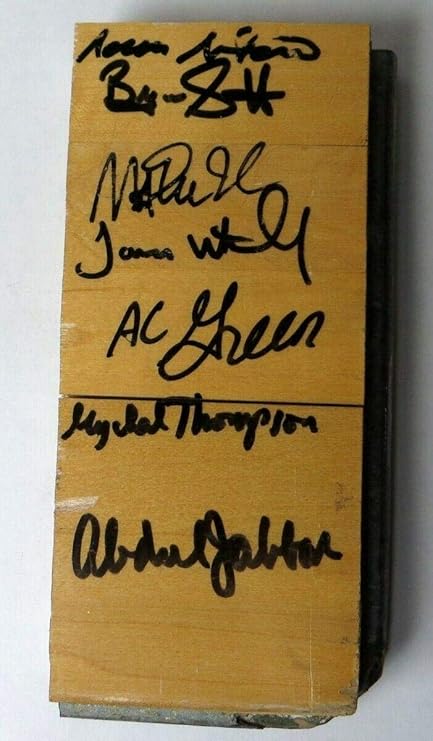 Byron Scott
James Worthy
AC Green
Mychal Thompson
Abdul Jabbar